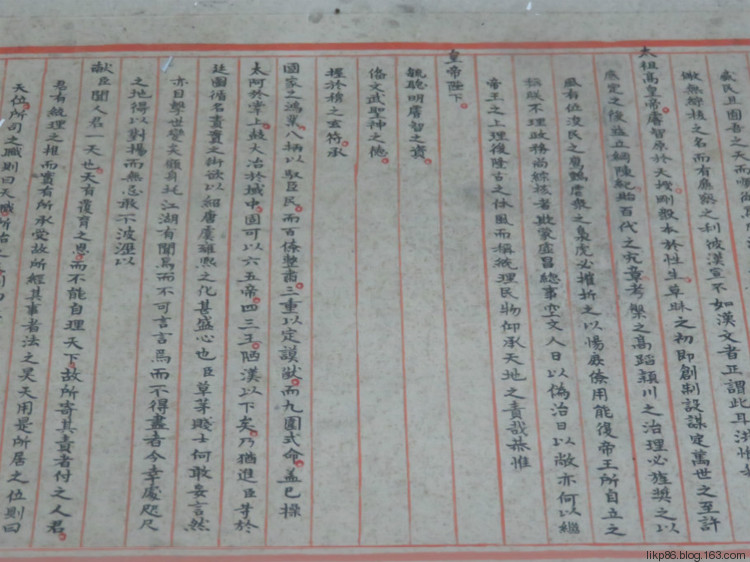 盛民且困吾之天而
敝無綜核之名而有廉察之利彼漢宣不如漢文者正謂此耳洪惟
太祖高皇帝睿智原於天授剛毅本於性生草昧之初即創制設謀定萬世之至計
底定之後益立綱陳紀貽百代之宏章考槃之高蹈潁川之治理必旌獎之以
風有位浚民之鷹鸇虐衆之梟虎必摧折之以惕庶僚用能復帝王所自立之
稱職不理政務尚綜核者欺蒙虛冒總事空文人日以偽治日以敝亦何以繼
帝王之上理後隆古之休風而稱統理民物仰承天地之責哉恭惟
皇帝陛下
毓聰明睿智之資
備文武聖神之德
握於穆之玄符承
國家之鴻業八柄以馭臣民而百僚整肅三重以定謨猷而九圍式命蓋已操
太阿於掌上鼓大冶於域中固可以六五帝四三王陋漢以下矣乃猶進臣等於
廷圖循名責實之術欲以紹唐虞雍熙之化甚盛心也臣草茅賤士何敢妄言然
亦目擊世變矣顧身託江湖有聞焉而不可言言焉而不得盡者今幸處咫尺
之地得以對揚而無忌敢不披瀝以
獻臣聞人君一天也天有覆育之恩而不能自理天下故所寄其責者付之人君
君有統理之權而實有所承受故所經其事者法之昊天用是所居之位則曰
天位所司之職則曰天職所治之
likp86.blog.163.com